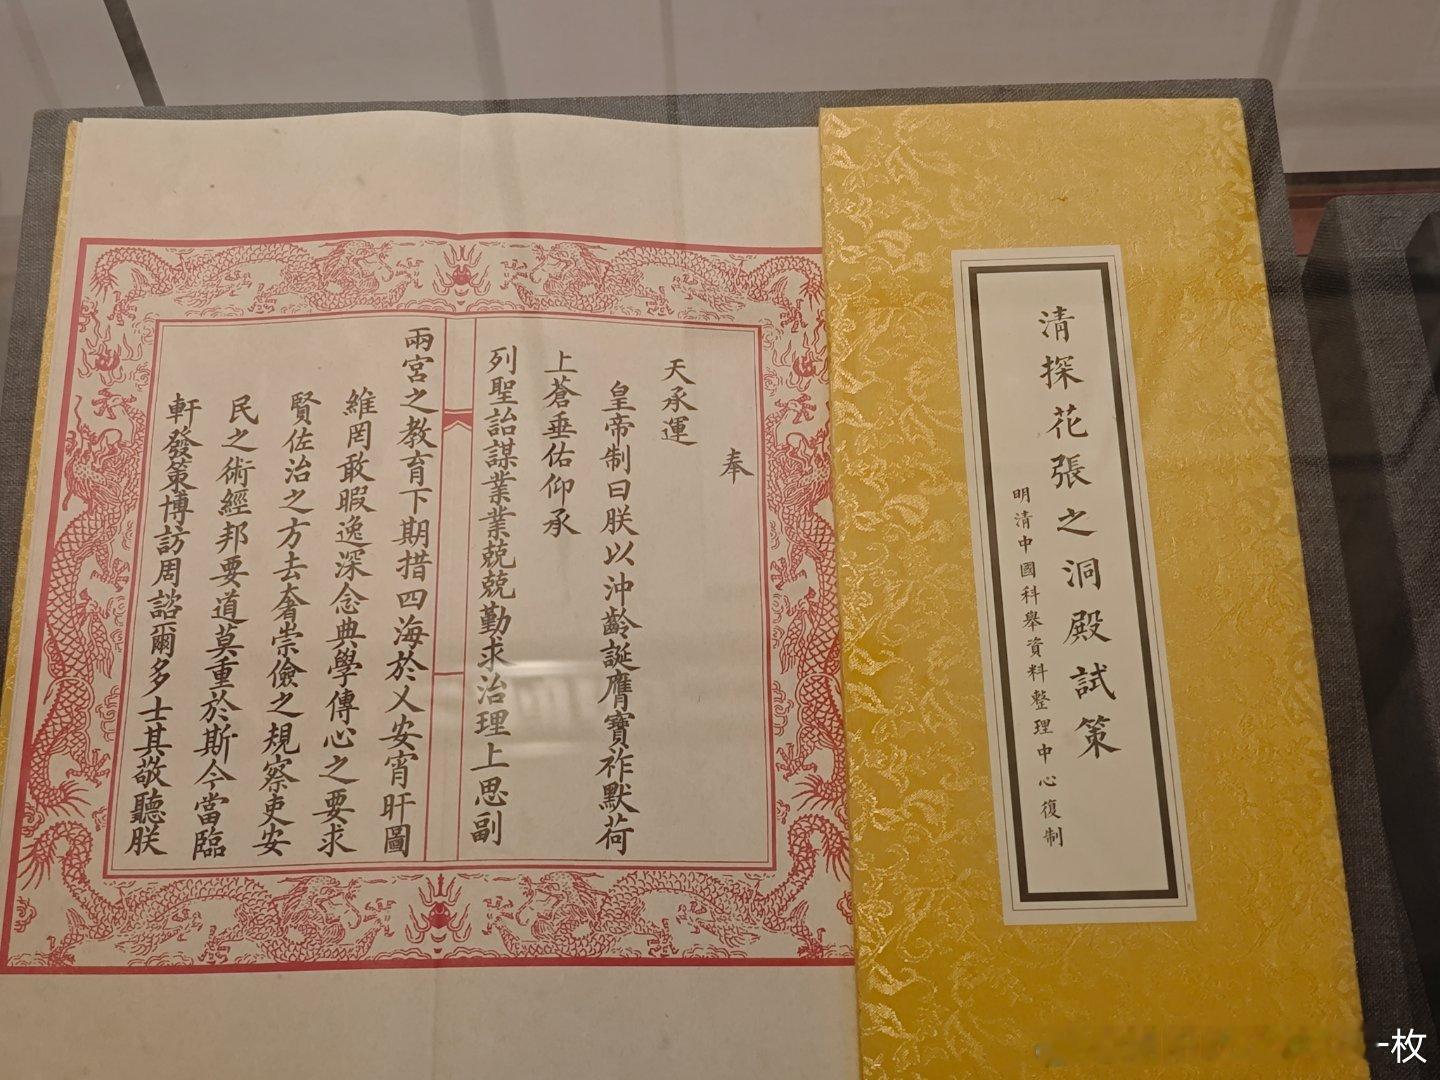 清探花張之洞殿試策
明清中國科舉資料整理中心復制
奉
天承運
皇帝制曰朕以沖齡誕膺寶祚默荷
上蒼垂佑仰承
列聖詒謀業業兢兢勤求治理上思副
兩宮之教育下期措四海於乂安宵旰圖
維罔敢暇逸深念典學傳心之要求
賢佐治之方去奢崇儉之規察吏安
民之術經邦要道莫重於斯今當臨
軒發策博訪周諮爾多士其敬聽朕
-枚